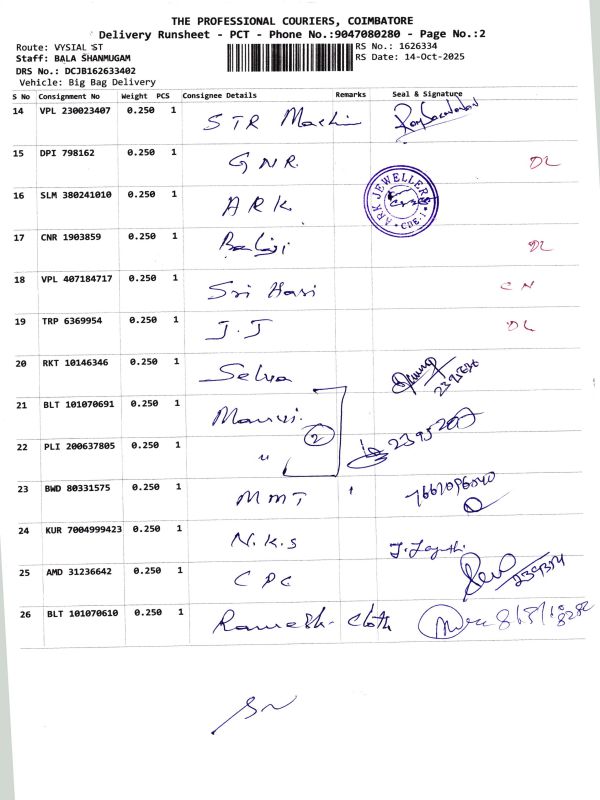 THE PROFESSIONAL COURIERS, COIMBATORE
Delivery Runsheet - PCT - Phone No.:9047080280 - Page No.:2
Route: VYSIAL ST
RS No.: 1626334
Staff: BALA SHANMUGAM
RS Date: 14-Oct-2025
DRS No.: DCJB162633402
Vehicle: Big Bag Delivery
S No Consignment No Weight PCS Consignee Details Remarks Seal & Signature
14 VPL 230023407 0.250 1 STR Machin
15 DPI 798162 0.250 1 GNR DL
16 SLM 380241010 0.250 1 ARK ARK JEWELLERS CBE-1
17 CNR 1903859 0.250 1 Balaji DL
18 VPL 407184717 0.250 1 Sri Hari CN
19 TRP 6369954 0.250 1 J.J DL
20 RKT 10146346 0.250 1 Selva
21 BLT 101070691 0.250 1 2
22 PLI 200637805 0.250 1 "
23 BWD 80331575 0.250 1 MMT
24 KUR 7004999423 0.250 1 N.K.S
25 AMD 31236642 0.250 1 CPC
26 BLT 101070610 0.250 1 Ramesh Cloth